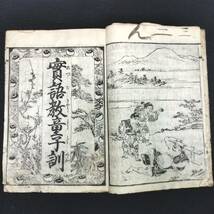 實語教童子訓